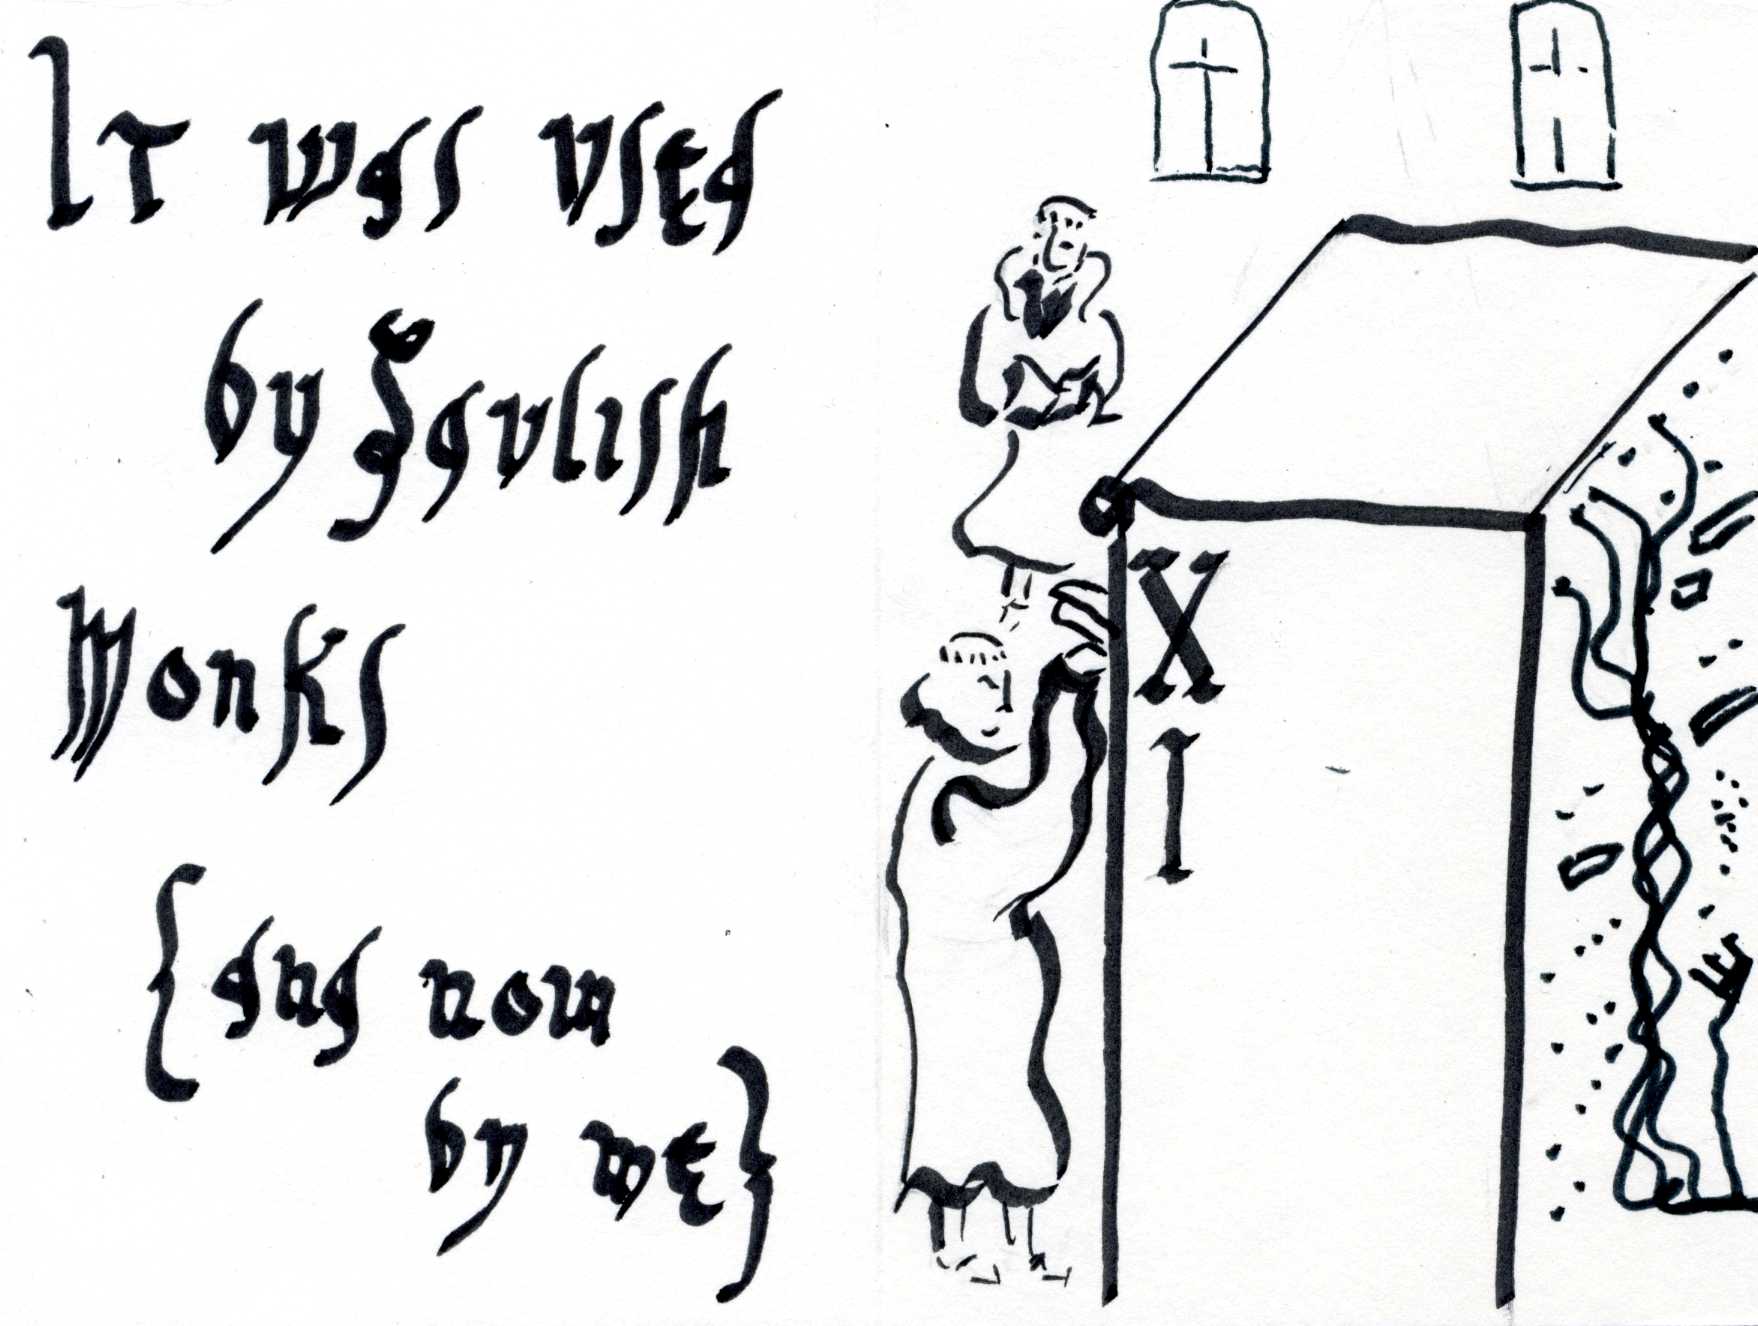 It was vsed
by Gavlish
Monks
{and now
by me}
X
I